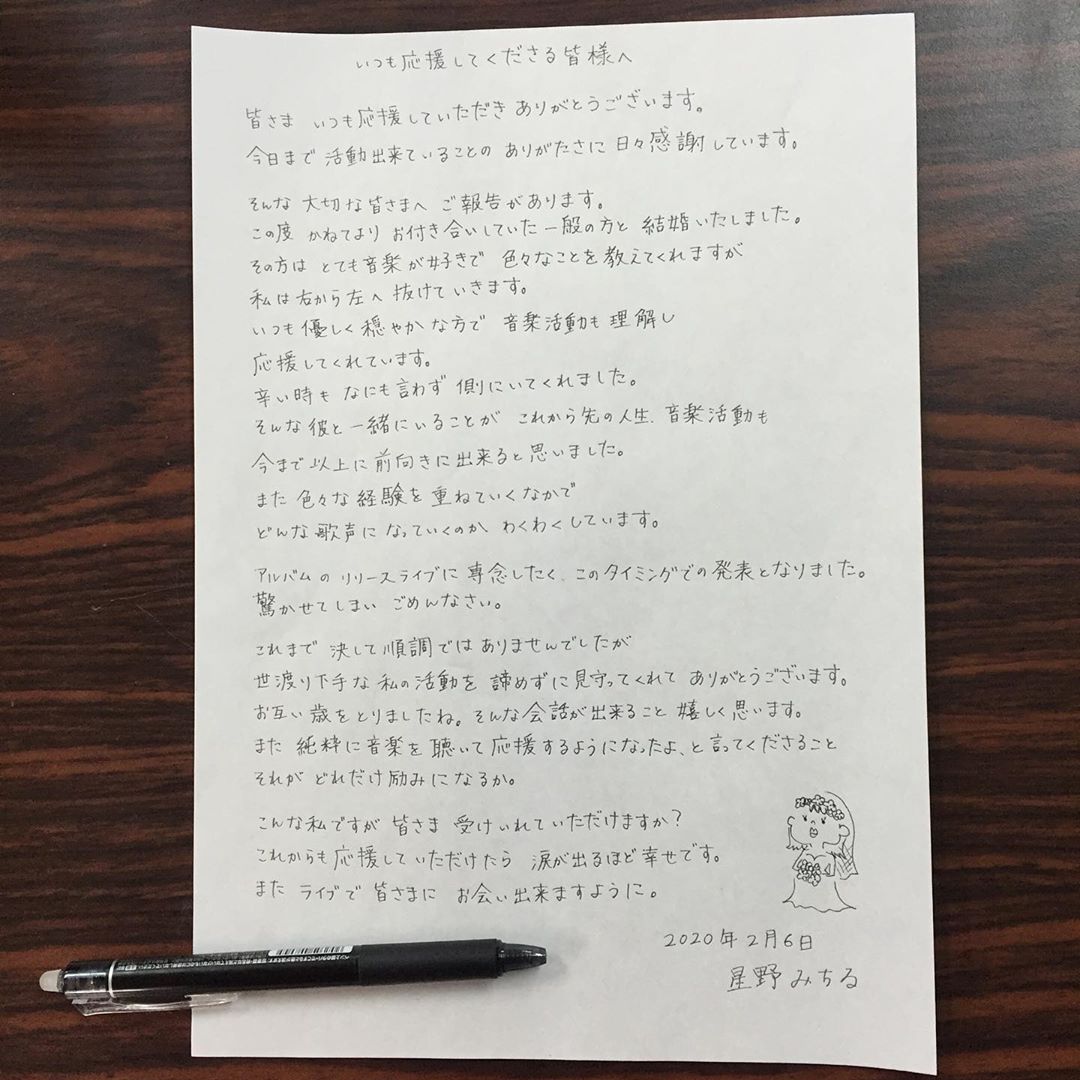 いつも応援してくださる皆様へ
皆さま いつも応援していただき ありがとうございます。
今日まで 活動出来ていることの ありがたさに 日々感謝しています。
そんな 大切な皆さまへ ご報告があります。
この度 かねてより お付き合いしていた 一般の方と 結婚いたしました。
その方は とても音楽が好きで 色々なことを教えてくれますが
私は右から左へ 抜けていきます。
いつも優しく穏やかな方で 音楽活動も理解し
応援してくれています。
辛い時も なにも言わず 側にいてくれました。
そんな彼と一緒にいることが これから先の人生、音楽活動も
今まで以上に前向きに出来ると思いました。
また 色々な経験を重ねていくなかで
どんな歌声になっていくのか わくわくしています。
アルバムの リリースライブに 専念したく、このタイミングでの発表となりました。
驚かせてしまい ごめんなさい。
これまで 決して順調ではありませんでしたが
世渡り下手な 私の活動を 諦めずに見守ってくれて ありがとうございます。
お互い歳をとりましたね。そんな会話が出来ること 嬉しく思います。
また 純粋に音楽を聴いて応援するようになったよ、と言ってくださること
それが どれだけ励みになるか。
こんな私ですが 皆さま 受けいれていただけますか?
これからも応援していただけたら 涙が出るほど幸せです。
また ライブで 皆さまに お会い出来ますように。
2020年2月6日
星野みちる